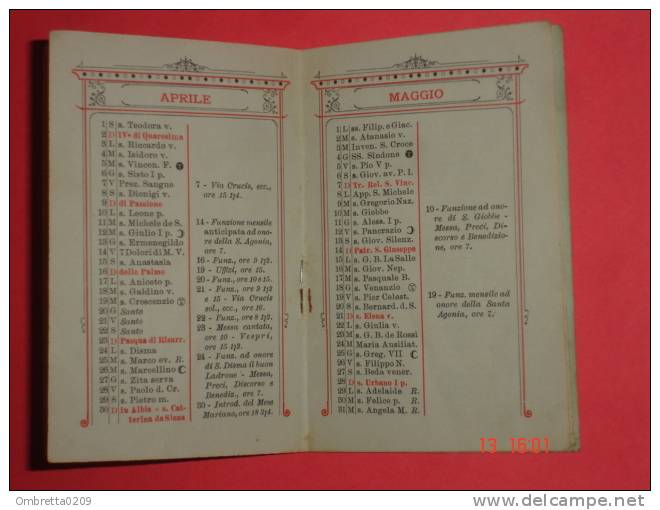 APRILE
1 S s. Teodora v.
2 D IVª di Quaresima
3 L s. Riccardo v.
4 M s. Isidoro v.
5 M s. Vincen. F.
6 G s. Sisto I p.
7 V Prez. Sangue
8 S s. Dionigi v.
9 D di Passione
10 L s. Leone p.
11 M s. Michele de S.
12 M s. Giulio I p.
13 G s. Ermenegildo
14 V 7 Dolori di M. V.
15 S s. Anastasia
16 D delle Palme
17 L s. Aniceto p.
18 M s. Galdino v.
19 M s. Crescenzio
20 G Santo
21 V Santo
22 S Santo
23 D Pasqua di Risurr.
24 L s. Disma
25 M s. Marco ev. R.
26 M s. Marcellino
27 G s. Zita serva
28 V s. Paolo d. Cr.
29 S s. Pietro m.
30 D in Albis - s. Cat-
terina da Siena
7 - Via Crucis, ecc.,
ore 15 1|4.
14 - Funzione mensile
anticipata ad onore
della S. Agonia,
ore 7.
16 - Funz., ore 9 1|2
19 - Uffizi, ore 15.
20 - Funz., ore 10 e 15
21 - Funz., ore 9 1|2
e 15 - Via Crucis
sol., ecc., ore 16.
22 - Funz., ore 8 1|2.
23 - Messa cantata,
ore 10 - Vespri,
ore 15 1|2
24 - Funz. ad onore
di S. Disma il buon
Ladrone - Messa,
Preci, Discorso e
Benediz., ore 7.
30 - Introd. del Mese
Mariano, ore 18 3|4.
MAGGIO
1 L ss. Filip. e Giac.
2 M s. Atanasio v.
3 M Inven. S. Croce
4 G SS. Sindone
5 V s. Pio V p.
6 S s. Giov. av. P. L.
7 D Tr. Rel. S. Vinc.
8 L App. S. Michele
9 M s. Gregorio Naz.
10 M s. Giobbe
11 G s. Aless. I p.
12 V s. Pancrazio
13 S s. Giov. Silenz.
14 D Patr. S. Giuseppe
15 L s. G. B. La Salle
16 M s. Giov. Nep.
17 M s. Pasquale B.
18 G s. Venanzio
19 V s. Pier Celest.
20 S s. Bernard. d. S.
21 D s. Elena v.
22 L s. Giulia v.
23 M s. G. B. de Rossi
24 M Maria Ausiliat.
25 G s. Greg. VII
26 V s. Filippo N.
27 S s. Beda vener.
28 D s. Urbano I p.
29 L s. Adelaide R.
30 M s. Felice p. R.
31 M s. Angela M. R.
10 - Funzione ad onore
di S. Giobbe -
Messa, Preci, Discorso
e Benedizione,
ore 7.
19 - Funz. mensile ad
onore della Santa
Agonia, ore 7.
13 16:01
Ombretta0209
delcampe.net